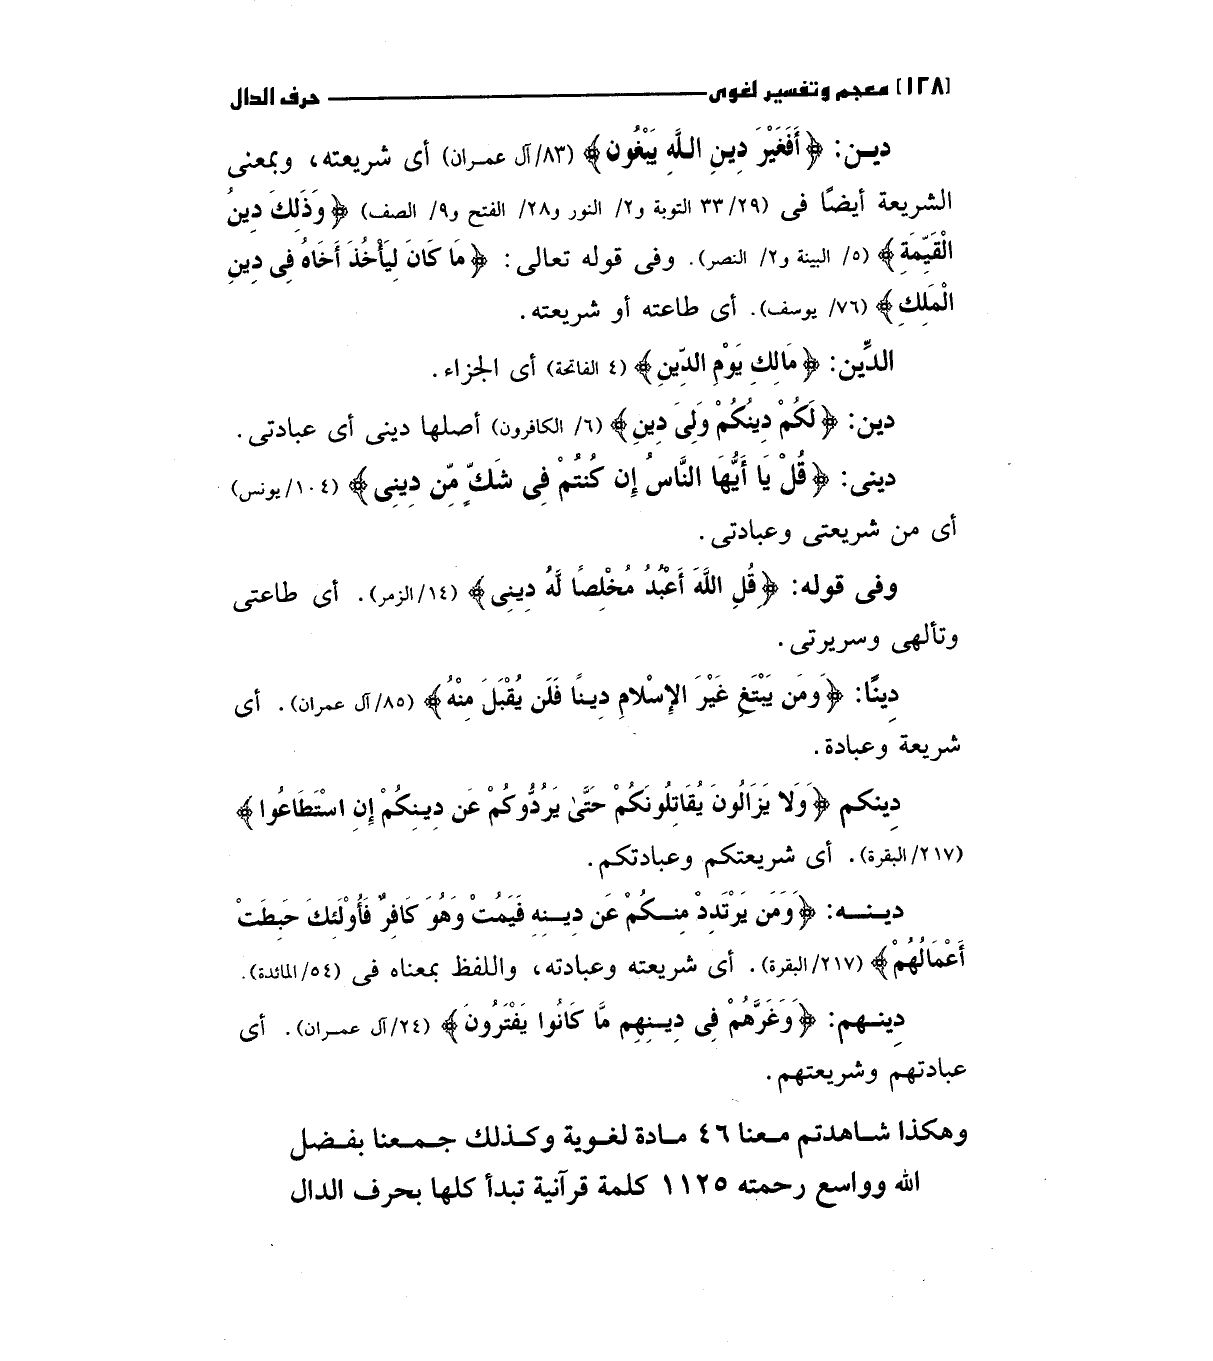 [١٢٨] معجم وتفسير لغوى ــــــــــ حرف الدال
ديـن: ﴿أَفَغَيْرَ دِينِ اللَّهِ يَبْغُونَ﴾ (٨٣/آل عمـران) أى شريعته، وبمعنى
الشريعة أيضًا فى (٣٣/٢٩ التوبة و٢/ النور و٢٨/ الفتح و٩/ الصف) ﴿وَذَلِكَ دِينُ
الْقَيِّمَةِ﴾ (٥/ البينة و٢/ النصر). وفى قوله تعالى: ﴿مَا كَانَ لِيَأْخُذَ أَخَاهُ فِى دِينِ
الْمَلِكِ﴾ (٧٦/ يوسف). أى طاعته أو شريعته.
الدِّين: ﴿مَالِكِ يَوْمِ الدِّينِ﴾ (٤ الفاتحة) أى الجزاء.
دين: ﴿لَكُمْ دِينُكُمْ وَلِىَ دِينِ﴾ (٦/ الكافرون) أصلها دينى أى عبادتى.
دينى: ﴿قُلْ يَا أَيُّهَا النَّاسُ إِن كُنتُمْ فِى شَكٍّ مِّن دِينِى﴾ (١٠٤/يونس)
أى من شريعتى وعبادتى.
وفى قوله: ﴿قُلِ اللَّهَ أَعْبُدُ مُخْلِصًا لَّهُ دِينِى﴾ (١٤/الزمر). أى طاعتى
وتألهى وسريرتى.
دِينًا: ﴿وَمَن يَبْتَغِ غَيْرَ الإِسْلامِ دِينًا فَلَن يُقْبَلَ مِنْهُ﴾ (٨٥/آل عمران). أى
شريعة وعبادة.
دِينكم ﴿وَلا يَزَالُونَ يُقَاتِلُونَكُمْ حَتَّىٰ يَرُدُّوكُمْ عَن دِينِكُمْ إِنِ اسْتَطَاعُوا﴾
(٢١٧/البقرة). أى شريعتكم وعبادتكم.
ديـنـــه: ﴿وَمَن يَرْتَدِدْ مِنـكُمْ عَن دِيـنِهِ فَيَمُتْ وَهُوَ كَافِرٌ فَأُوْلَئِكَ حَبِطَتْ
أَعْمَالُهُمْ﴾ (٢١٧/البقرة). أى شريعته وعبادته، واللفظ بمعناه فى (٥٤/المائدة).
دِينـهم: ﴿وَغَرَّهُمْ فِى دِيـنِهِم مَّا كَانُوا يَفْتَرُونَ﴾ (٢٤/آل عمـران). أى
عبادتهم وشريعتهم.
وهكذا شـاهدتم مـعنا ٤٦ مـادة لغـوية وكـذلك جـمـعنا بفـضل
الله وواسع رحمته ١١٢٥ كلمة قرآنية تبدأ كلها بحرف الدال